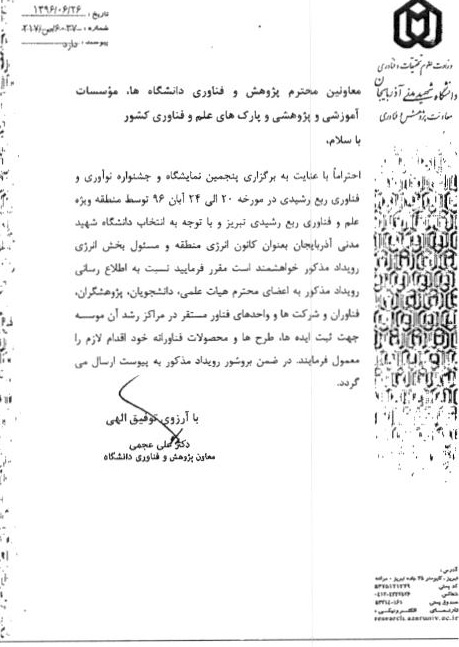 تاریخ : ۱۳۹۶/۰۶/۲۶
شماره :
پیوست : دارد
وزارت علوم تحقیقات و فناوری
دانشگاه شهید مدنی آذربایجان
معاونت پژوهش و فناوری
معاونین محترم پژوهش و فناوری دانشگاه ها، مؤسسات
آموزشی و پژوهشی و پارک های علم و فناوری کشور
با سلام،
احتراماً با عنایت به برگزاری پنجمین نمایشگاه و جشنواره نوآوری و
فناوری ربع رشیدی در مورخه ۲۰ الی ۲۴ آبان ۹۶ توسط منطقه ویژه
علم و فناوری ربع رشیدی تبریز و با توجه به انتخاب دانشگاه شهید
مدنی آذربایجان بعنوان کانون انرژی منطقه و مسئول بخش انرژی
رویداد مذکور خواهشمند است مقرر فرمایید نسبت به اطلاع رسانی
رویداد مذکور به اعضای محترم هیات علمی، دانشجویان، پژوهشگران،
فناوران و شرکت ها و واحدهای فناور مستقر در مراکز رشد آن موسسه
جهت ثبت ایده ها، طرح ها و محصولات فناورانه خود اقدام لازم را
معمول فرمایند. در ضمن بروشور رویداد مذکور به پیوست ارسال می
گردد.
با آرزوی توفیق الهی
دکتر علی عجمی
معاون پژوهش و فناوری دانشگاه
آدرس :
تبریز، کیلومتر ۳۵ جاده تبریز - مراغه
کد پستی
صندوق پستی ۵۳۷۱۴-۱۶۱
research.azaruniv.ac.ir